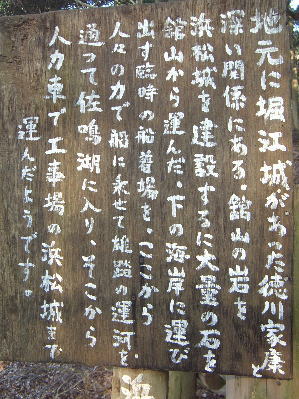 地元に堀江城があった徳川家康と
深い関係にある。舘山の岩を
浜松城を建設するに大量の石を
舘山から運んだ、下の海岸に運び
出す臨時の船着場を、ここから
人々の力で船に乗せて雄踏の運河を
通って佐鳴湖に入り、そこから
人力車で工事場の浜松城まで
運んだようです。